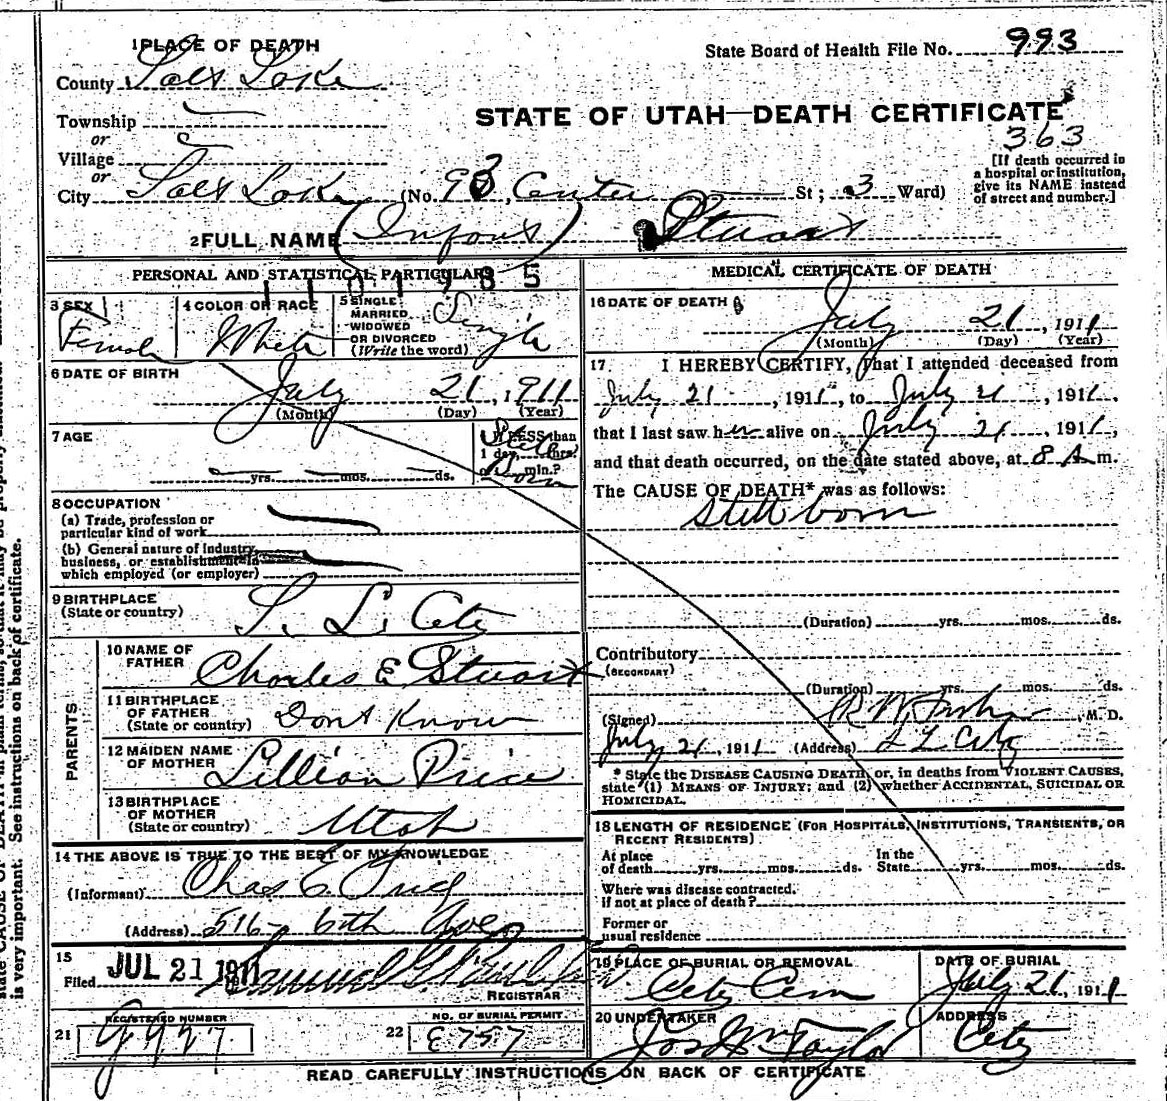 1 PLACE OF DEATH
State Board of Health File No. 993
County Salt Lake
STATE OF UTAH—DEATH CERTIFICATE
Township
or
363
Village
or
[If death occurred in
a hospital or institution,
give its NAME instead
of street and number.]
City Salt Lake (No. 93, Center St; 3 Ward)
2 FULL NAME (Infant) Stuart
PERSONAL AND STATISTICAL PARTICULARS
1101985
3 SEX
Female
4 COLOR OR RACE
White
5 SINGLE
MARRIED
WIDOWED
OR DIVORCED
(Write the word)
Single
6 DATE OF BIRTH
July 21, 1911
(Month) (Day) (Year)
7 AGE
yrs. mos. ds.
If LESS than
1 day, hrs.
or min.?
Still
Born
8 OCCUPATION
(a) Trade, profession or
particular kind of work
(b) General nature of industry
business, or establishment in
which employed (or employer)
9 BIRTHPLACE
(State or country)
S. L. City
PARENTS
10 NAME OF
FATHER
Charles E Stuart
11 BIRTHPLACE
OF FATHER
(State or country)
Dont Know
12 MAIDEN NAME
OF MOTHER
Lillian Price
13 BIRTHPLACE
OF MOTHER
(State or country)
Utah
14 THE ABOVE IS TRUE TO THE BEST OF MY KNOWLEDGE
(Informant) Chas E.
(Address) 516- 6th Ave
15
Filed JUL 21 1911
REGISTRAR
21 REGISTERED NUMBER
G 9927
22 NO. OF BURIAL PERMIT
E 757
MEDICAL CERTIFICATE OF DEATH
16 DATE OF DEATH
July 21, 1911
(Month) (Day) (Year)
17 I HEREBY CERTIFY, That I attended deceased from
July 21, 1911, to July 21, 1911,
that I last saw her alive on July 21, 1911,
and that death occurred, on the date stated above, at 8 A m.
The CAUSE OF DEATH* was as follows:
Still born
(Duration) yrs. mos. ds.
Contributory
(SECONDARY)
(Duration) yrs. mos. ds.
(Signed) R W, M. D.
July 21, 1911 (Address) S L City
* State the DISEASE CAUSING DEATH, or, in deaths from VIOLENT CAUSES,
state (1) MEANS OF INJURY; and (2) whether ACCIDENTAL, SUICIDAL OR
HOMICIDAL.
18 LENGTH OF RESIDENCE (FOR HOSPITALS, INSTITUTIONS, TRANSIENTS, OR
RECENT RESIDENTS)
At place
of death yrs. mos. ds.
In the
State yrs. mos. ds.
Where was disease contracted.
if not at place of death?
Former or
usual residence
19 PLACE OF BURIAL OR REMOVAL
City Cem
DATE OF BURIAL
July 21, 1911
20 UNDERTAKER
Jos Wm Taylor
ADDRESS
City
READ CAREFULLY INSTRUCTIONS ON BACK OF CERTIFICATE
is very important. See instructions on back of certificate.